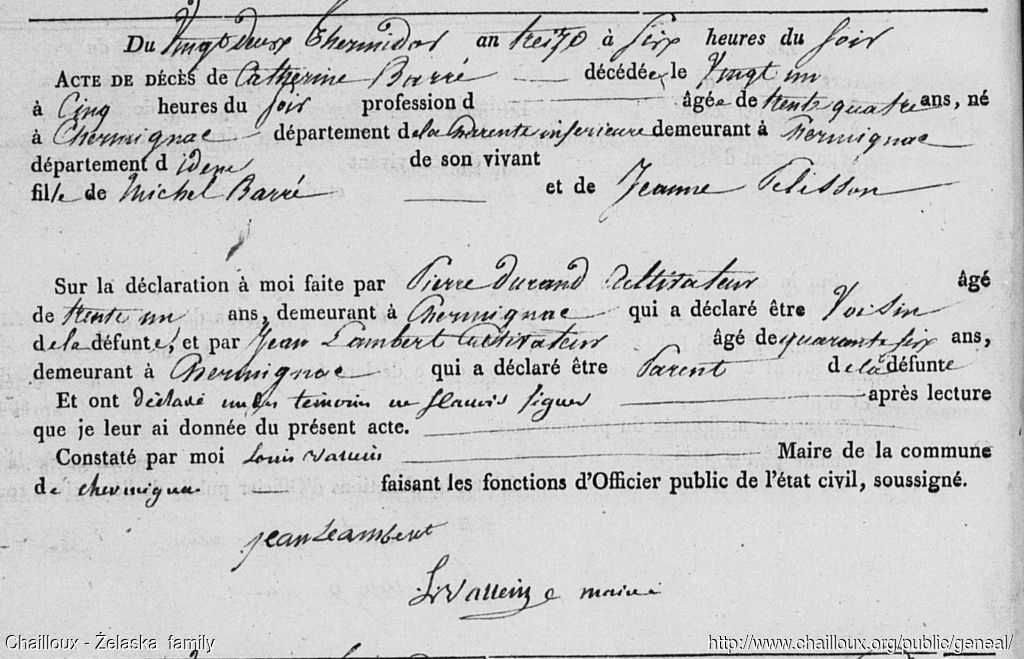 Du vingt deux thermidor an treize à six heures du soir
ACTE DE DÉCÈS de Catherine Barré décédée le vingt un
à Cinq heures du soir profession d âgée de trente quatre ans, né
à Chermignac département de la Charente inferieure demeurant à Chermignac
département d idem de son vivant
fille de Michel Barré et de Jeanne Pelisson
Sur la déclaration à moi faite par Pierre Durand Cultivateur âgé
de trente un ans, demeurant à Chermignac qui a déclaré être Voisin
de la défunte, et par Jean Lambert Cultivateur âgé de quarante six ans,
demeurant à Chermignac qui a déclaré être Parent de la défunte
Et ont déclaré temoin ne signer après lecture
que je leur ai donnée du présent acte.
Constaté par moi Louis Vallein Maire de la commune
de chermignac faisant les fonctions d'Officier public de l'état civil, soussigné.
jean Leambert
Ls Vallein maire
Chailloux - Żelaska family
http://www.chailloux.org/public/geneal/